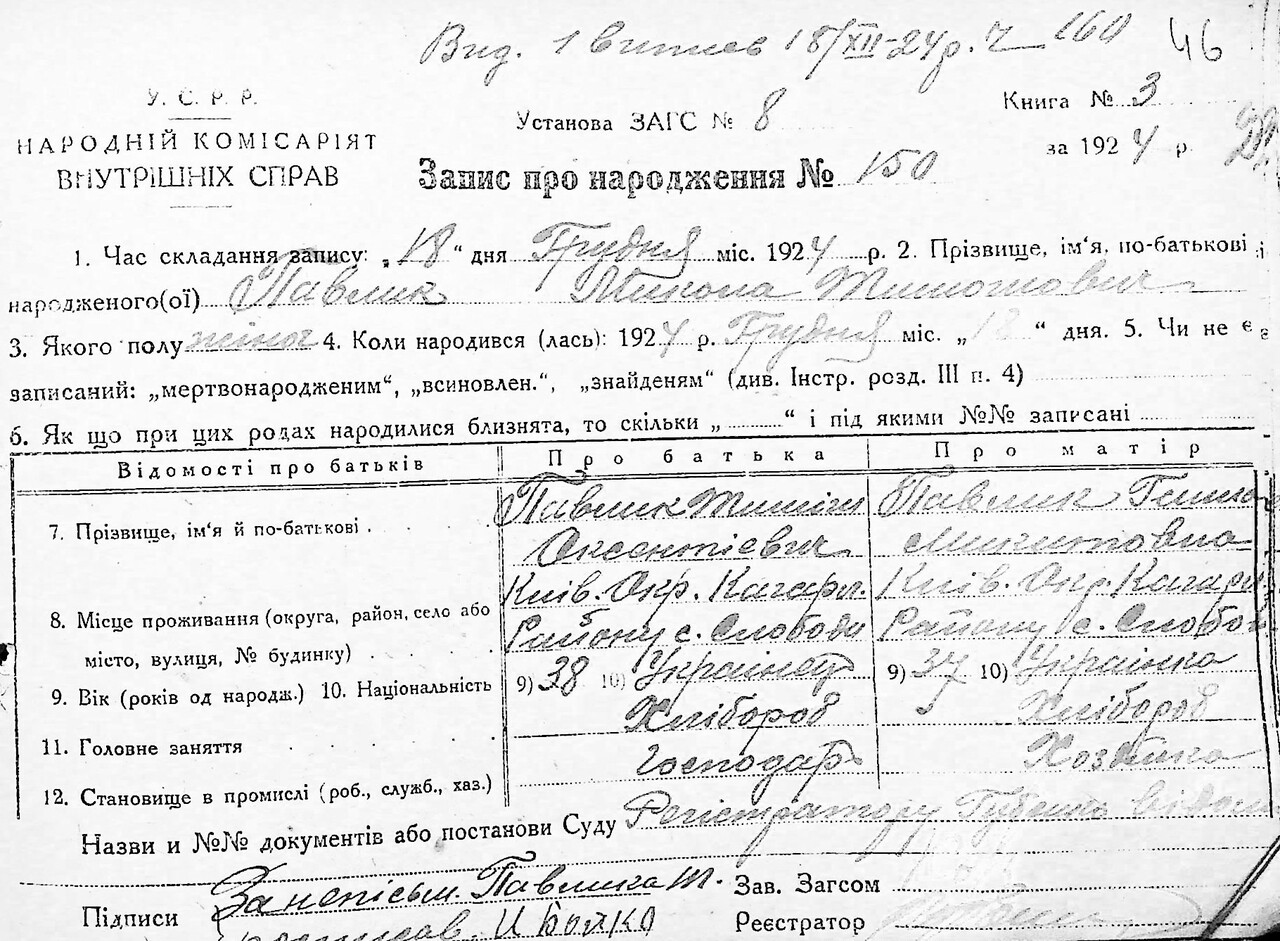 Вид. 1 витяг 18/XII-24 р. Ч 160 46
У. С. Р. Р.
НАРОДНІЙ КОМІСАРІЯТ
ВНУТРІШНІХ СПРАВ
Установа ЗАГС № 8
Книга № 3
за 1924 р.
Запис про народження № 150
1. Час складання запису: „18“ дня Грудня міс. 1924 р. 2. Прізвище, ім'я, по-батькові
народженого(ої) Павлик Микола Тимошович
3. Якого полу 4. Коли народився (лась): 1924 р. Грудня міс. „18“ дня. 5. Чи не є
записаний: „мертвонародженим“, „всиновлен.“, „знайденям“ (див. Інстр. розд. III п. 4)
6. Як що при цих родах народилися близнята, то скільки „ “ і під якими №№ записані
Відомості про батьків Про батька Про матір
7. Прізвище, ім'я й по-батькові
Павлик Тиміш
Оксентієвич
Павлик
Микитовна
8. Місце проживання (округа, район, село або
місто, вулиця, № будинку)
Київ. Окр. Кагарл.
Району с. Слободи
Київ. Окр. Кагарл
Району с. Слобод
9. Вік (років од народж.) 10. Національність 9) 38 10) Українец 9) 37 10) Українка
11. Головне заняття Хлібороб Хлібороб
12. Становище в промислі (роб., служб., хаз.) Господарь Хозяйка
Назви и №№ документів або постанови Суду Регістратору Губенко відом
Підписи За неписьм. Павлика Т.
И Бойко
Зав. Загсом
Реєстратор